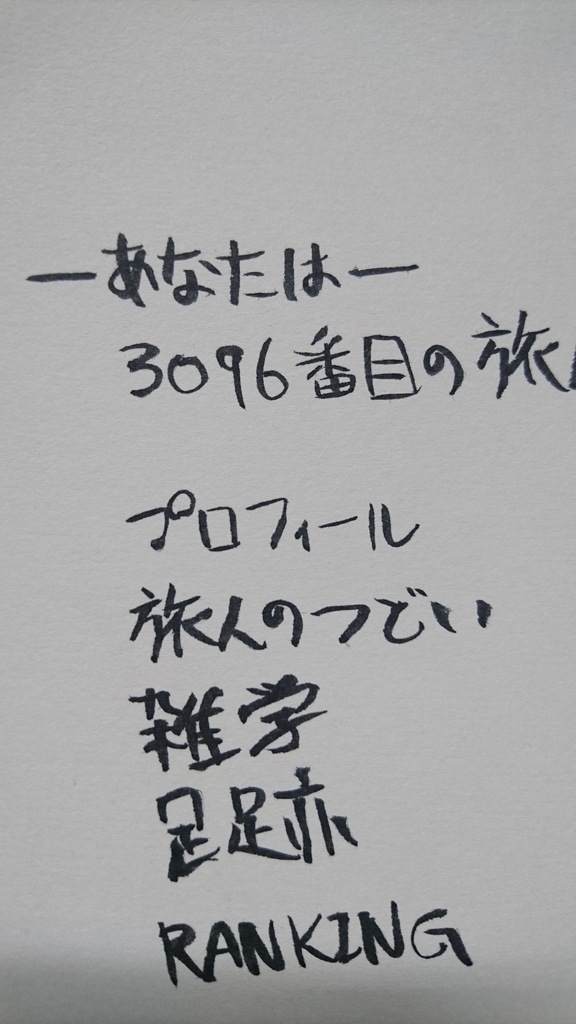 ーあなたはー
3096番目の旅
プロフィール
旅人のつどい
雑学
足跡
RANKING